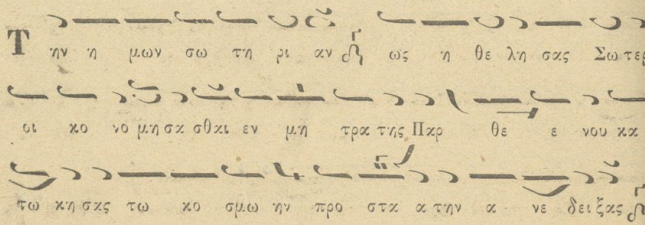 Την η μων σω τη ρι αν ως η θε λη σας Σω τερ
οι κο νο μη σα σθαι εν μη τρα της Παρ θε ε νου κα
τω κη σας τω κο σμω ην προ στα α την α νε δει ξας